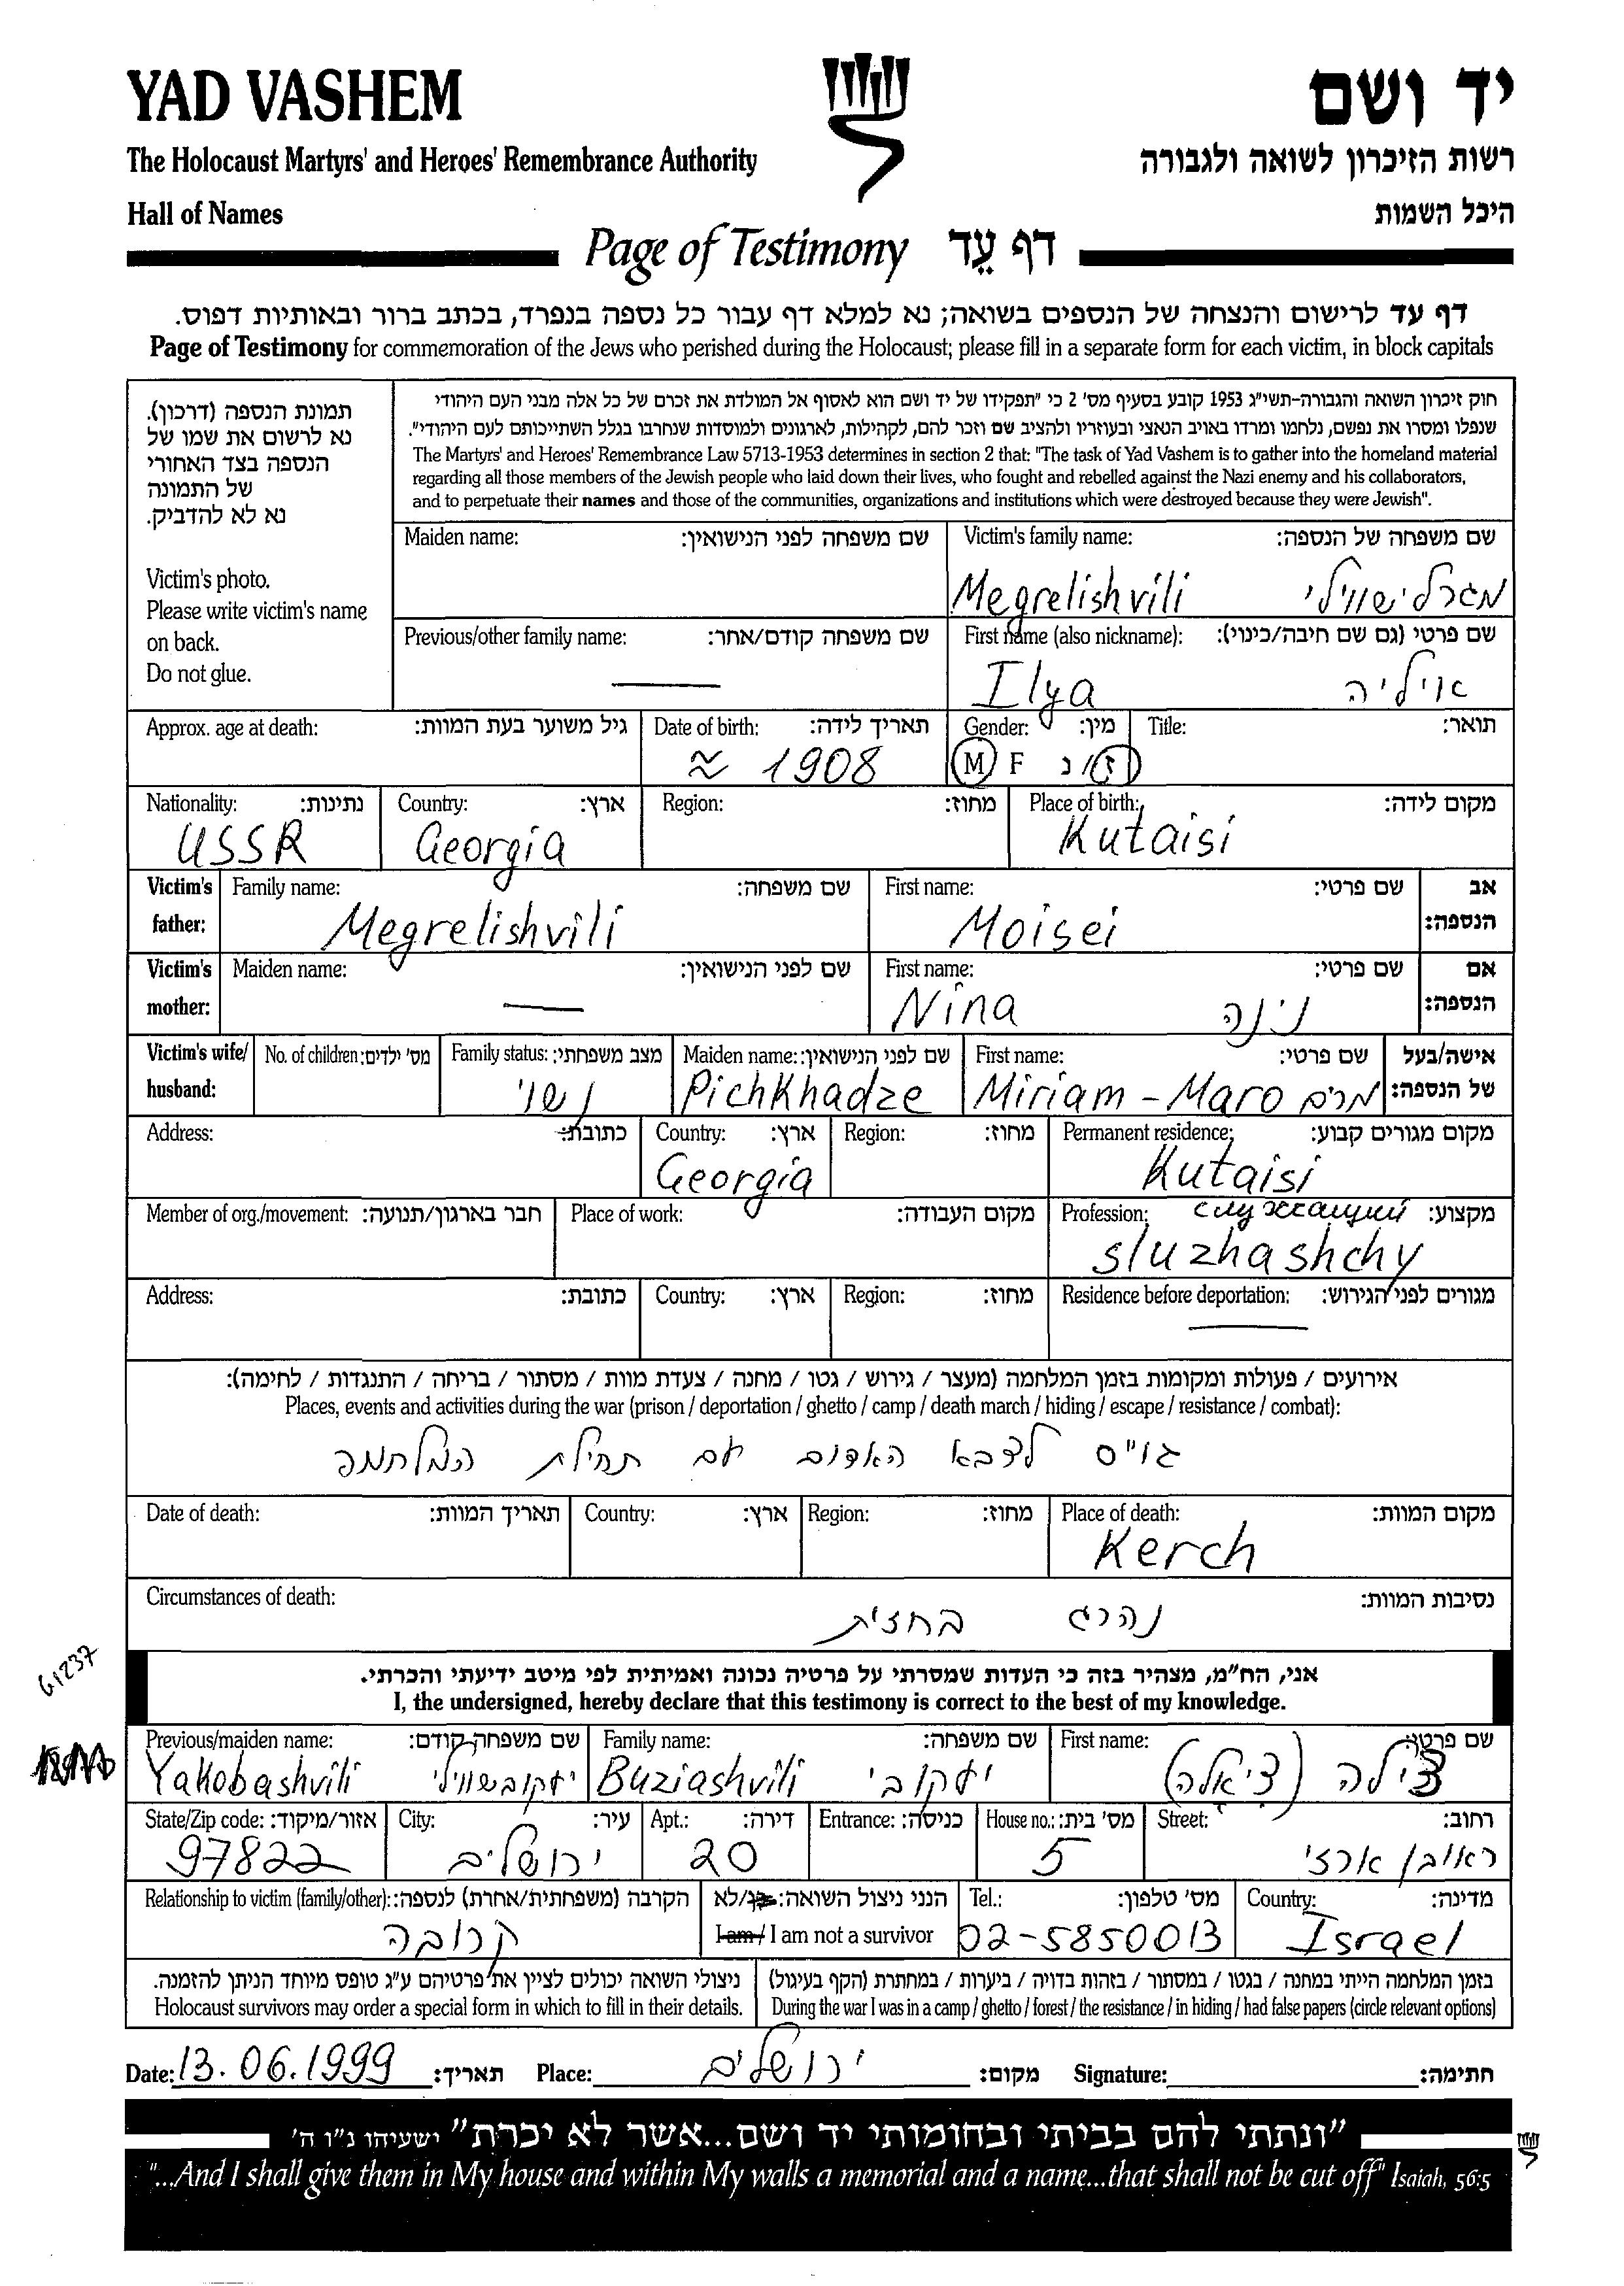 YAD VASHEM
יד ושם
The Holocaust Martyrs' and Heroes' Remembrance Authority
רשות הזיכרון לשואה ולגבורה
Hall of Names
היכל השמות
Page of Testimony דף עֵד
דף עד לרישום והנצחה של הנספים בשואה; נא למלא דף עבור כל נספה בנפרד, בכתב ברור ובאותיות דפוס.
Page of Testimony for commemoration of the Jews who perished during the Holocaust; please fill in a separate form for each victim, in block capitals
תמונת הנספה (דרכון).
נא לרשום את שמו של
הנספה בצד האחורי
של התמונה
נא לא להדביק.
Victim's photo.
Please write victim's name
on back.
Do not glue.
חוק זיכרון השואה והגבורה-תשי"ג 1953 קובע בסעיף מס' 2 כי "תפקידו של יד ושם הוא לאסוף אל המולדת את זכרם של כל אלה מבני העם היהודי
שנפלו ומסרו את נפשם, נלחמו ומרדו באויב הנאצי ובעוזריו ולהציב שם וזכר להם, לקהילות, לארגונים ולמוסדות שנחרבו בגלל השתייכותם לעם היהודי".
The Martyrs' and Heroes' Remembrance Law 5713-1953 determines in section 2 that: "The task of Yad Vashem is to gather into the homeland material
regarding all those members of the Jewish people who laid down their lives, who fought and rebelled against the Nazi enemy and his collaborators,
and to perpetuate their names and those of the communities, organizations and institutions which were destroyed because they were Jewish".
Maiden name: שם משפחה לפני הנישואין: Victim's family name: שם משפחה של הנספה:
Megrelishvili מגרלישווילי
Previous/other family name: שם משפחה קודם/אחר: First name (also nickname): שם פרטי (גם שם חיבה/כינוי):
Ilya איליה
Approx. age at death: גיל משוער בעת המוות: Date of birth: תאריך לידה: Gender: מין: Title: תואר:
≈ 1908 M F ז/נ
Nationality: נתינות: Country: ארץ: Region: מחוז: Place of birth: מקום לידה:
USSR Georgia Kutaisi
Victim's father: Family name: שם משפחה: First name: שם פרטי: אב הנספה:
Megrelishvili Moisei
Victim's mother: Maiden name: שם לפני הנישואין: First name: שם פרטי: אם הנספה:
Nina נינה
Victim's wife/ husband: No. of children: מס' ילדים: Family status: מצב משפחתי: Maiden name: שם לפני הנישואין: First name: שם פרטי: אישה/בעל של הנספה:
נשוי Pichkhadze Miriam - Maro מרים
Address: כתובת: Country: ארץ: Region: מחוז: Permanent residence: מקום מגורים קבוע:
Georgia Kutaisi
Member of org./movement: חבר בארגון/תנועה: Place of work: מקום העבודה: Profession: служащий מקצוע:
sluzhashchy
Address: כתובת: Country: ארץ: Region: מחוז: Residence before deportation: מגורים לפני הגירוש:
אירועים / פעולות ומקומות בזמן המלחמה (מעצר / גירוש / גטו / מחנה / צעדת מוות / מסתור / בריחה / התנגדות / לחימה):
Places, events and activities during the war (prison / deportation / ghetto / camp / death march / hiding / escape / resistance / combat):
גויס לצבא האדום עם תחילת המלחמה
Date of death: תאריך המוות: Country: ארץ: Region: מחוז: Place of death: מקום המוות:
Kerch
Circumstances of death: נסיבות המוות:
נהרג בחזית
61237
אני, הח"מ, מצהיר בזה כי העדות שמסרתי על פרטיה נכונה ואמיתית לפי מיטב ידיעתי והכרתי.
I, the undersigned, hereby declare that this testimony is correct to the best of my knowledge.
Previous/maiden name: שם משפחה קודם: Family name: שם משפחה: First name: שם פרטי:
Yakobashvili יעקובשווילי Buziashvili יעקובי צילה (ציאלה)
State/Zip code: אזור/מיקוד: City: עיר: Apt.: דירה: Entrance: כניסה: House no.: מס' בית: Street: רחוב:
97822 ירושלים 20 5 ראובן ארזי
Relationship to victim (family/other): הקרבה (משפחתית/אחרת) לנספה: הנני ניצול השואה: כן/לא Tel.: מס' טלפון: Country: מדינה:
קרובה I am / I am not a survivor 02-5850013 Israel
ניצולי השואה יכולים לציין את פרטיהם ע"ג טופס מיוחד הניתן להזמנה. בזמן המלחמה הייתי במחנה / בגטו / במסתור / בזהות בדויה / ביערות / במחתרת (הקף בעיגול)
Holocaust survivors may order a special form in which to fill in their details. During the war I was in a camp / ghetto / forest / the resistance / in hiding / had false papers (circle relevant options)
Date: 13.06.1999 תאריך: Place: ירושלים מקום: Signature: חתימה:
"ונתתי להם בביתי ובחומותי יד ושם...אשר לא יכרת" ישעיהו נ"ו ה'
"...And I shall give them in My house and within My walls a memorial and a name...that shall not be cut off" Isaiah, 56:5